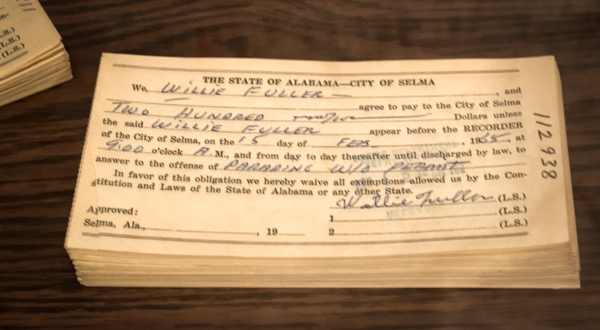 THE STATE OF ALABAMA—CITY OF SELMA
We, WILLIE FULLER, and
TWO HUNDRED no/100 agree to pay to the City of Selma Dollars unless
the said WILLIE FULLER appear before the RECORDER
of the City of Selma, on the 15 day of FEB., 1965, at
9:00 o'clock A. M., and from day to day thereafter until discharged by law, to
answer to the offense of PARADING W/O PERMIT
In favor of this obligation we hereby waive all exemptions allowed us by the Con-
stitution and Laws of the State of Alabama or any other State.
Willie Fuller (L.S.)
Approved: 1 (L.S.)
Selma, Ala., , 19 2 (L.S.)
112938
(L.S.)
(L.S.)